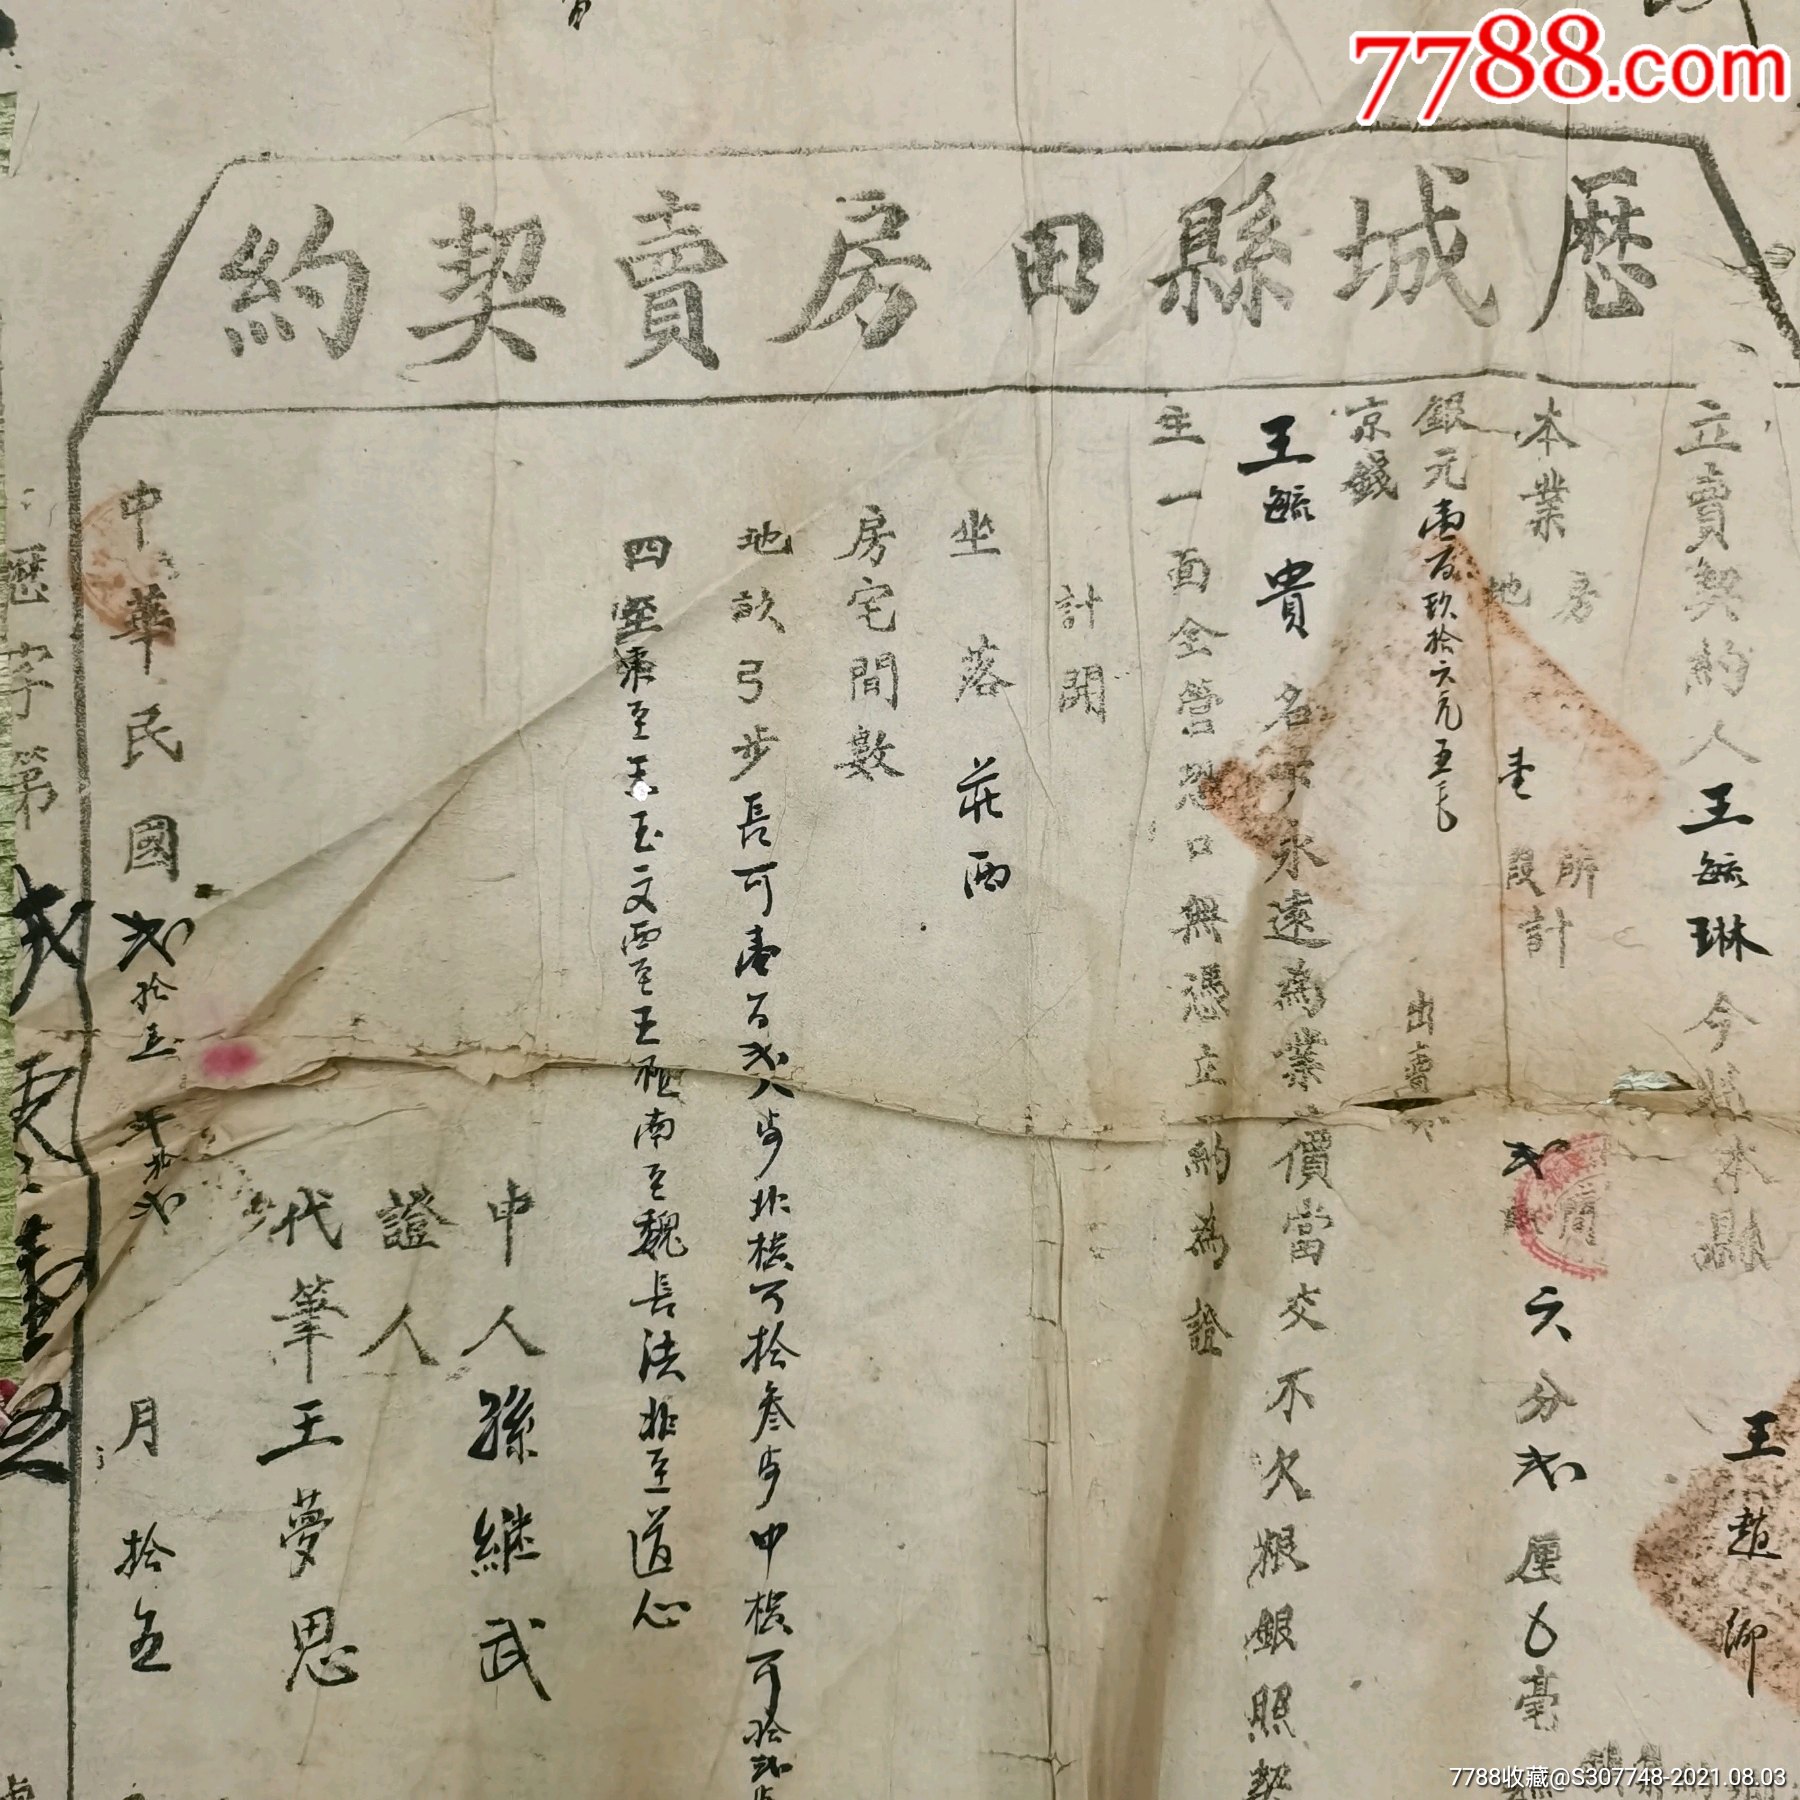 7788.com
歷城縣田房賣契約
立賣契約人王毓琳今將本縣 王趙卿
本業房地壹所段計 弍 六分弍厘6毫
銀元壹百玖拾六元五毛 出賣
京錢
王毓貴名下永遠為業價當交不欠根銀照契
主一面全管恐口無憑立約為證
計開
坐落 莊西
房宅間數
地畝弓步長可壹百弍八步北橫可拾叁步中橫可拾弍步
四至東至王玉文西至王 南至魏長法北至道心
中人孫繼武
證人
代筆王夢思
中華民國弍拾五年拾弍月拾五
歷字第
7788收藏@S307748-2021.08.03